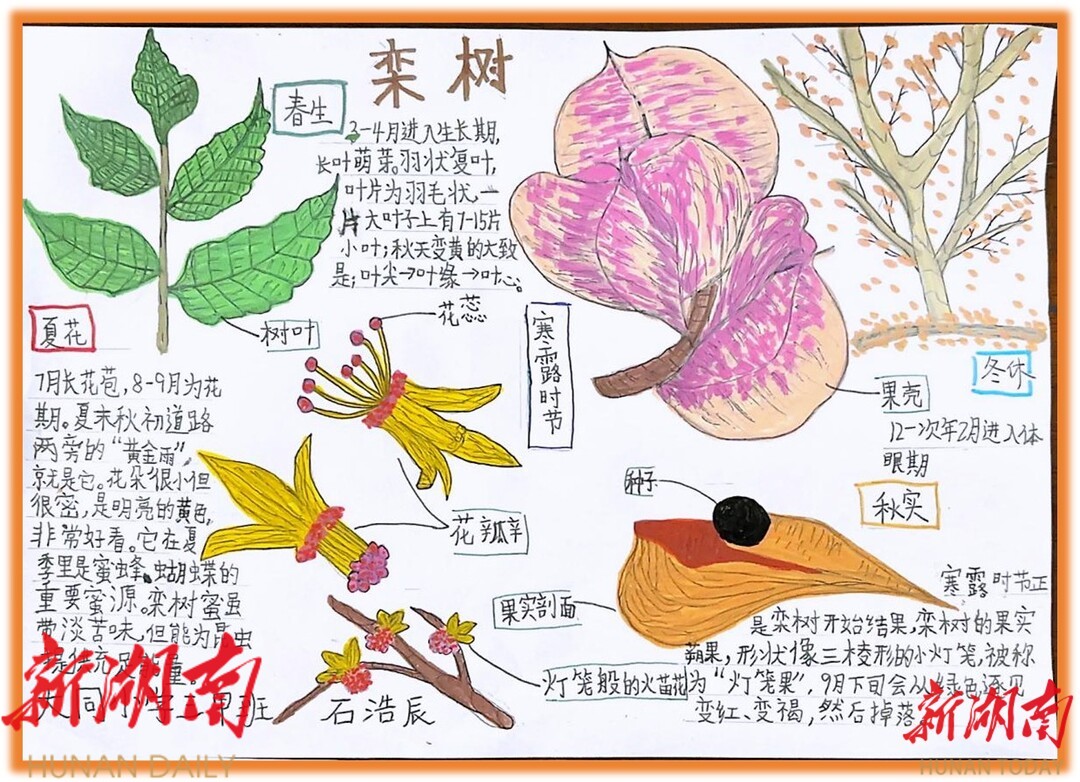 栾树
春生
3-4月进入生长期,
长叶萌芽。羽状复叶,
叶片为羽毛状,一
片大叶子上有7-15片
小叶;秋天变黄的大致
是:叶尖→叶缘→叶心。
树叶
夏花
7月长花苞,8-9月为花
期。夏末秋初道路
两旁的“黄金雨”,
就是它。花朵很小但
很密,是明亮的黄色,
非常好看。它在夏
季里是蜜蜂、蝴蝶的
重要蜜源。栾树蜜虽
带淡苦味,但能为昆虫
提供充足能量。
花蕊
花瓣
寒露时节
果壳
冬休
12-次年2月进入休
眠期
种子
秋实
果实剖面
灯笼般的火苗花
寒露时节正
是栾树开始结果,栾树的果实
蒴果,形状像三棱形的小灯笼,被称
为“灯笼果”,9月下旬会从绿色逐见
变红、变褐,然后掉落
石浩辰
新湖南
HUNAN DAILY
新湖南
HUNAN TODAY